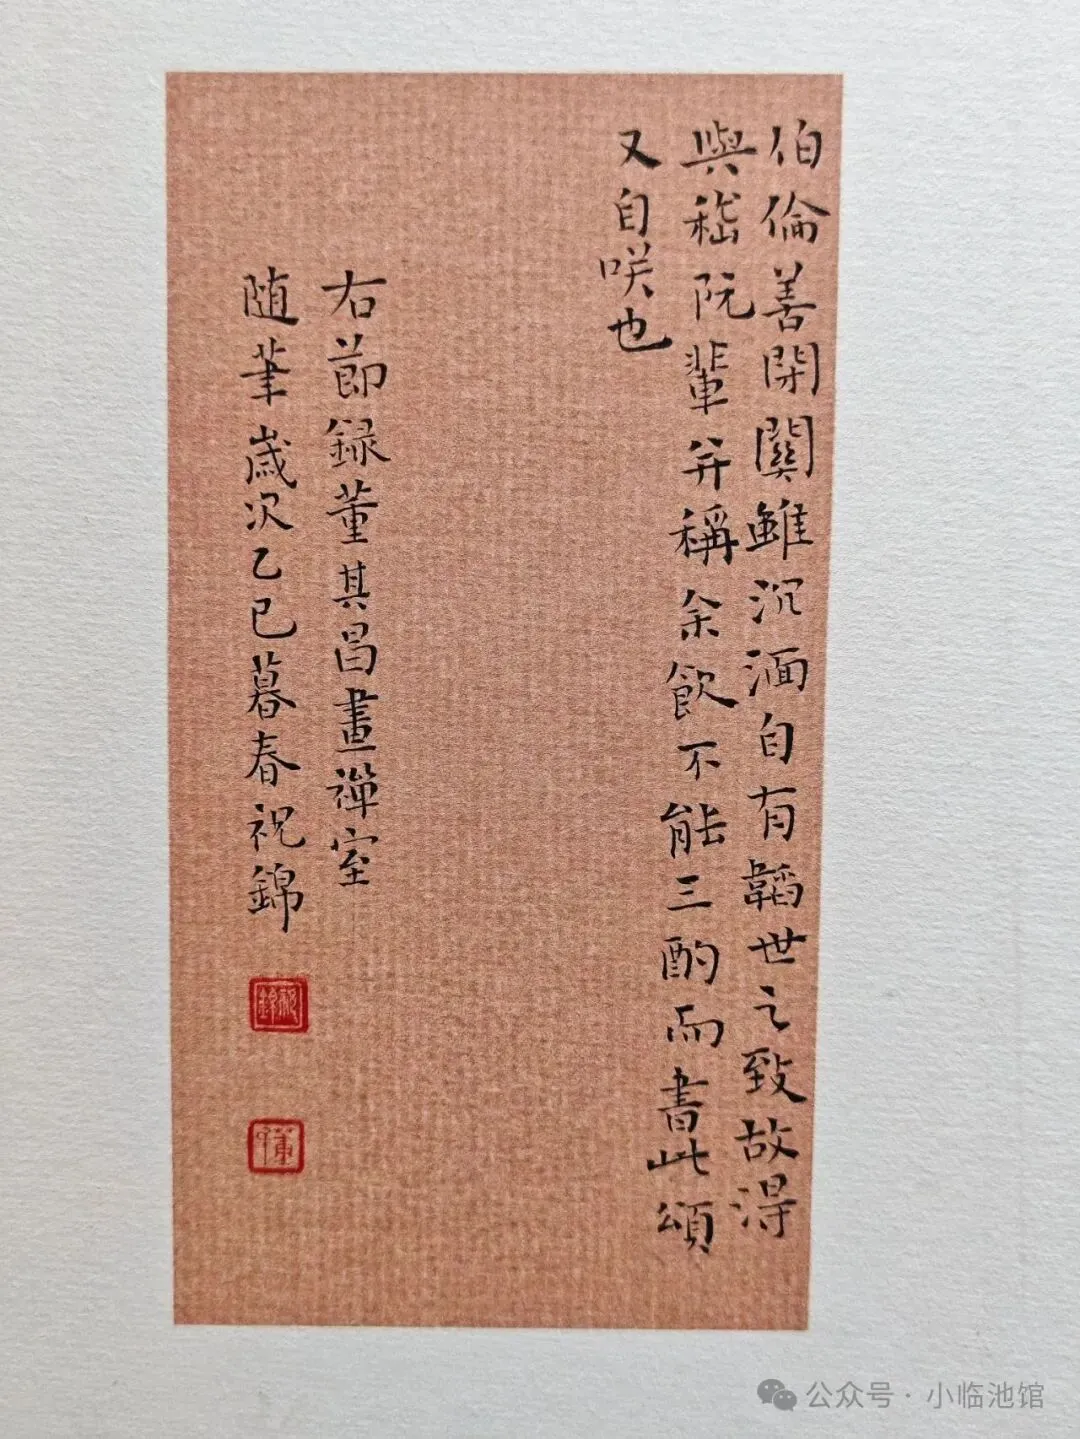 伯倫善閉關雖沉湎自有韜世之致故得
與嵇阮輩并稱余飲不能三酌而書此頌
又自咲也
右節録董其昌畫禪室
随筆歲次乙巳暮春祝錦
公众号·小临池馆